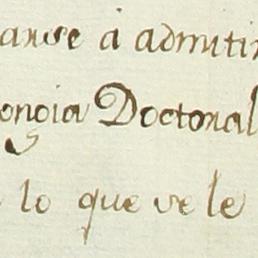 arse á admitir
ongia Doctoral
lo que se le